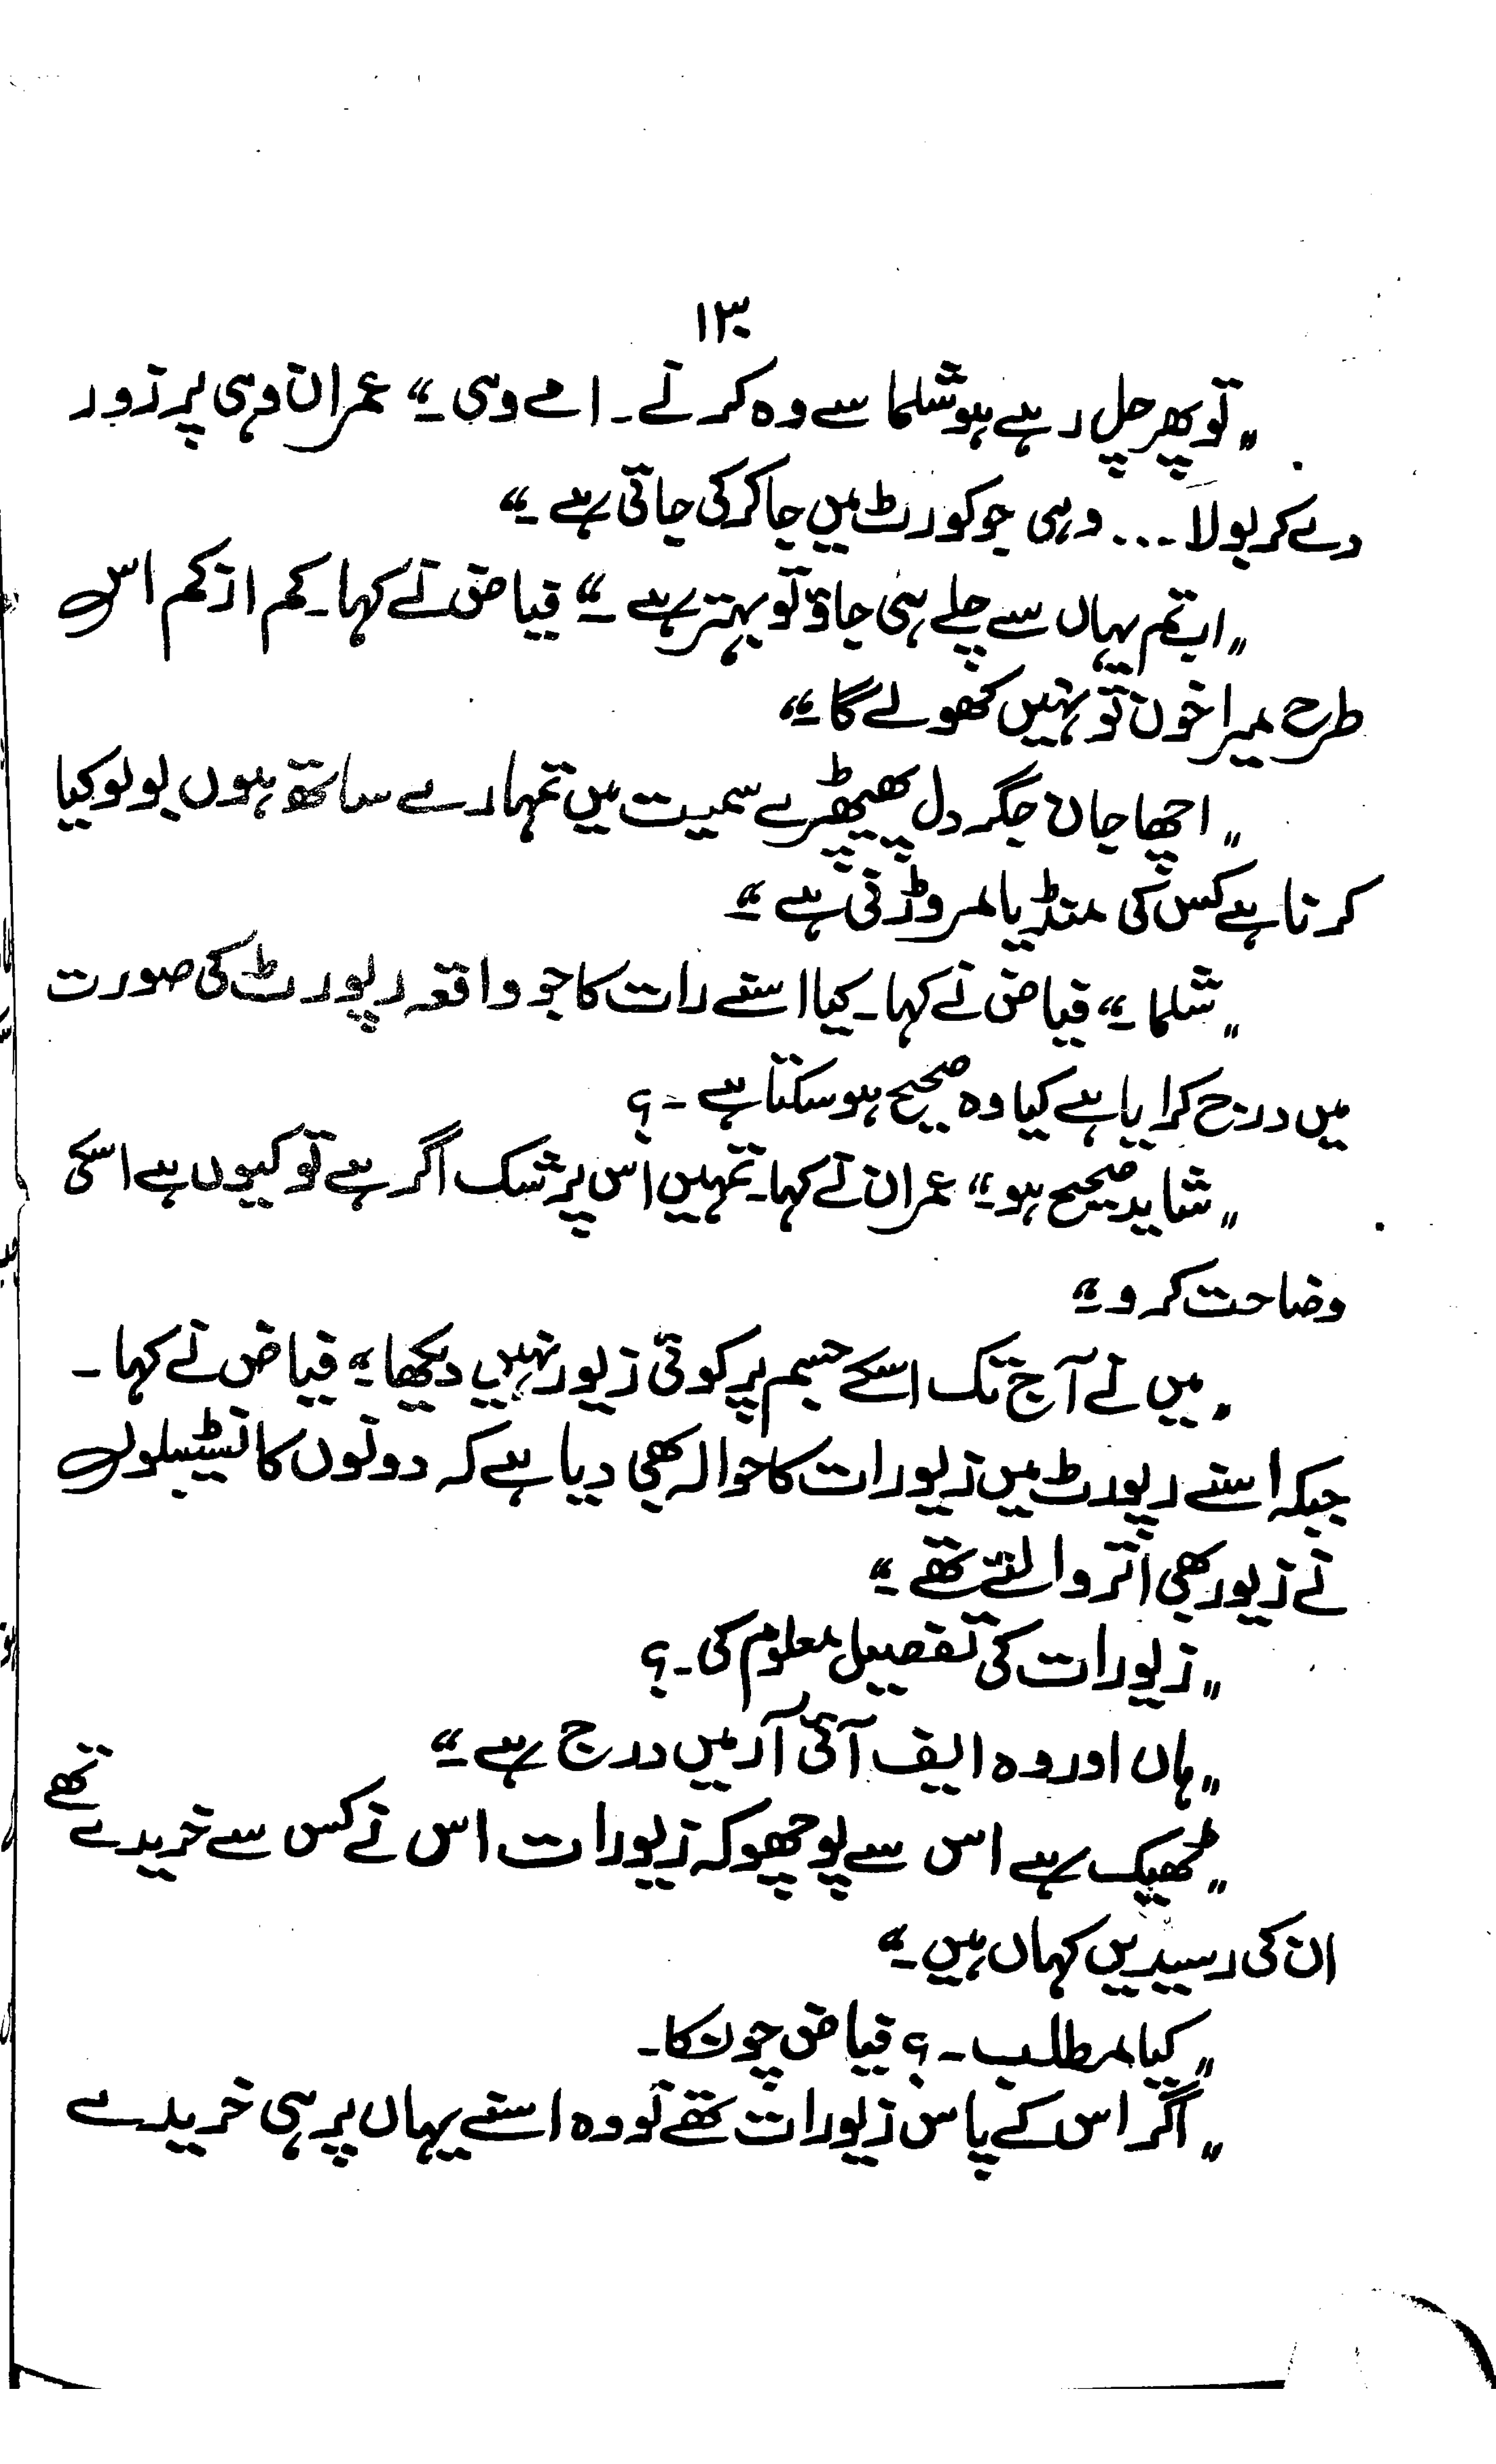 ۱۳
"تو پھر چل رہے ہو شلما سے وہ کرنے۔ امے وہی۔" عمران وہی پر زور
دے کر بولا ... وہی جو کورٹ میں جا کر کی جاتی ہے۔"
"اب تم یہاں سے چلے ہی جاؤ تو بہتر ہے۔" فیاض نے کہا۔ کم از کم اس
طرح میرا خون تو نہیں کھولے گا۔"
"اچھا جان جگر دل پھیپھڑے سمیت میں تمہارے ساتھ ہوں بولو کیا
کرنا ہے کس کی منڈیا مروڑنی ہے۔"
"شلما۔" فیاض نے کہا۔ کیا اسنے رات کا جو واقعہ رپورٹ کی صورت
میں درج کرایا ہے کیا وہ صحیح ہو سکتا ہے۔؟
"شاید صحیح ہو۔" عمران نے کہا۔ تمہیں اس پر شک اگر ہے تو کیوں ہے اسکی
وضاحت کرو۔"
"میں نے آج تک اسکے جسم پر کوئی زیور نہیں دیکھا۔" فیاض نے کہا۔
جبکہ اسنے رپورٹ میں زیورات کا حوالہ بھی دیا ہے کہ دونوں کانسٹیبلوں
نے زیور بھی اتروا لئے تھے۔"
"زیورات کی تفصیل معلوم کی۔؟
"ہاں اور وہ ایف آئی آر میں درج ہے۔"
"ٹھیک ہے اس سے پوچھو کہ زیورات اس نے کس سے خریدے تھے
ان کی رسیدیں کہاں ہیں۔"
"کیا مطلب۔؟ فیاض چونکا۔
"اگر اس کے پاس زیورات تھے تو وہ اسنے یہاں پر ہی خریدے